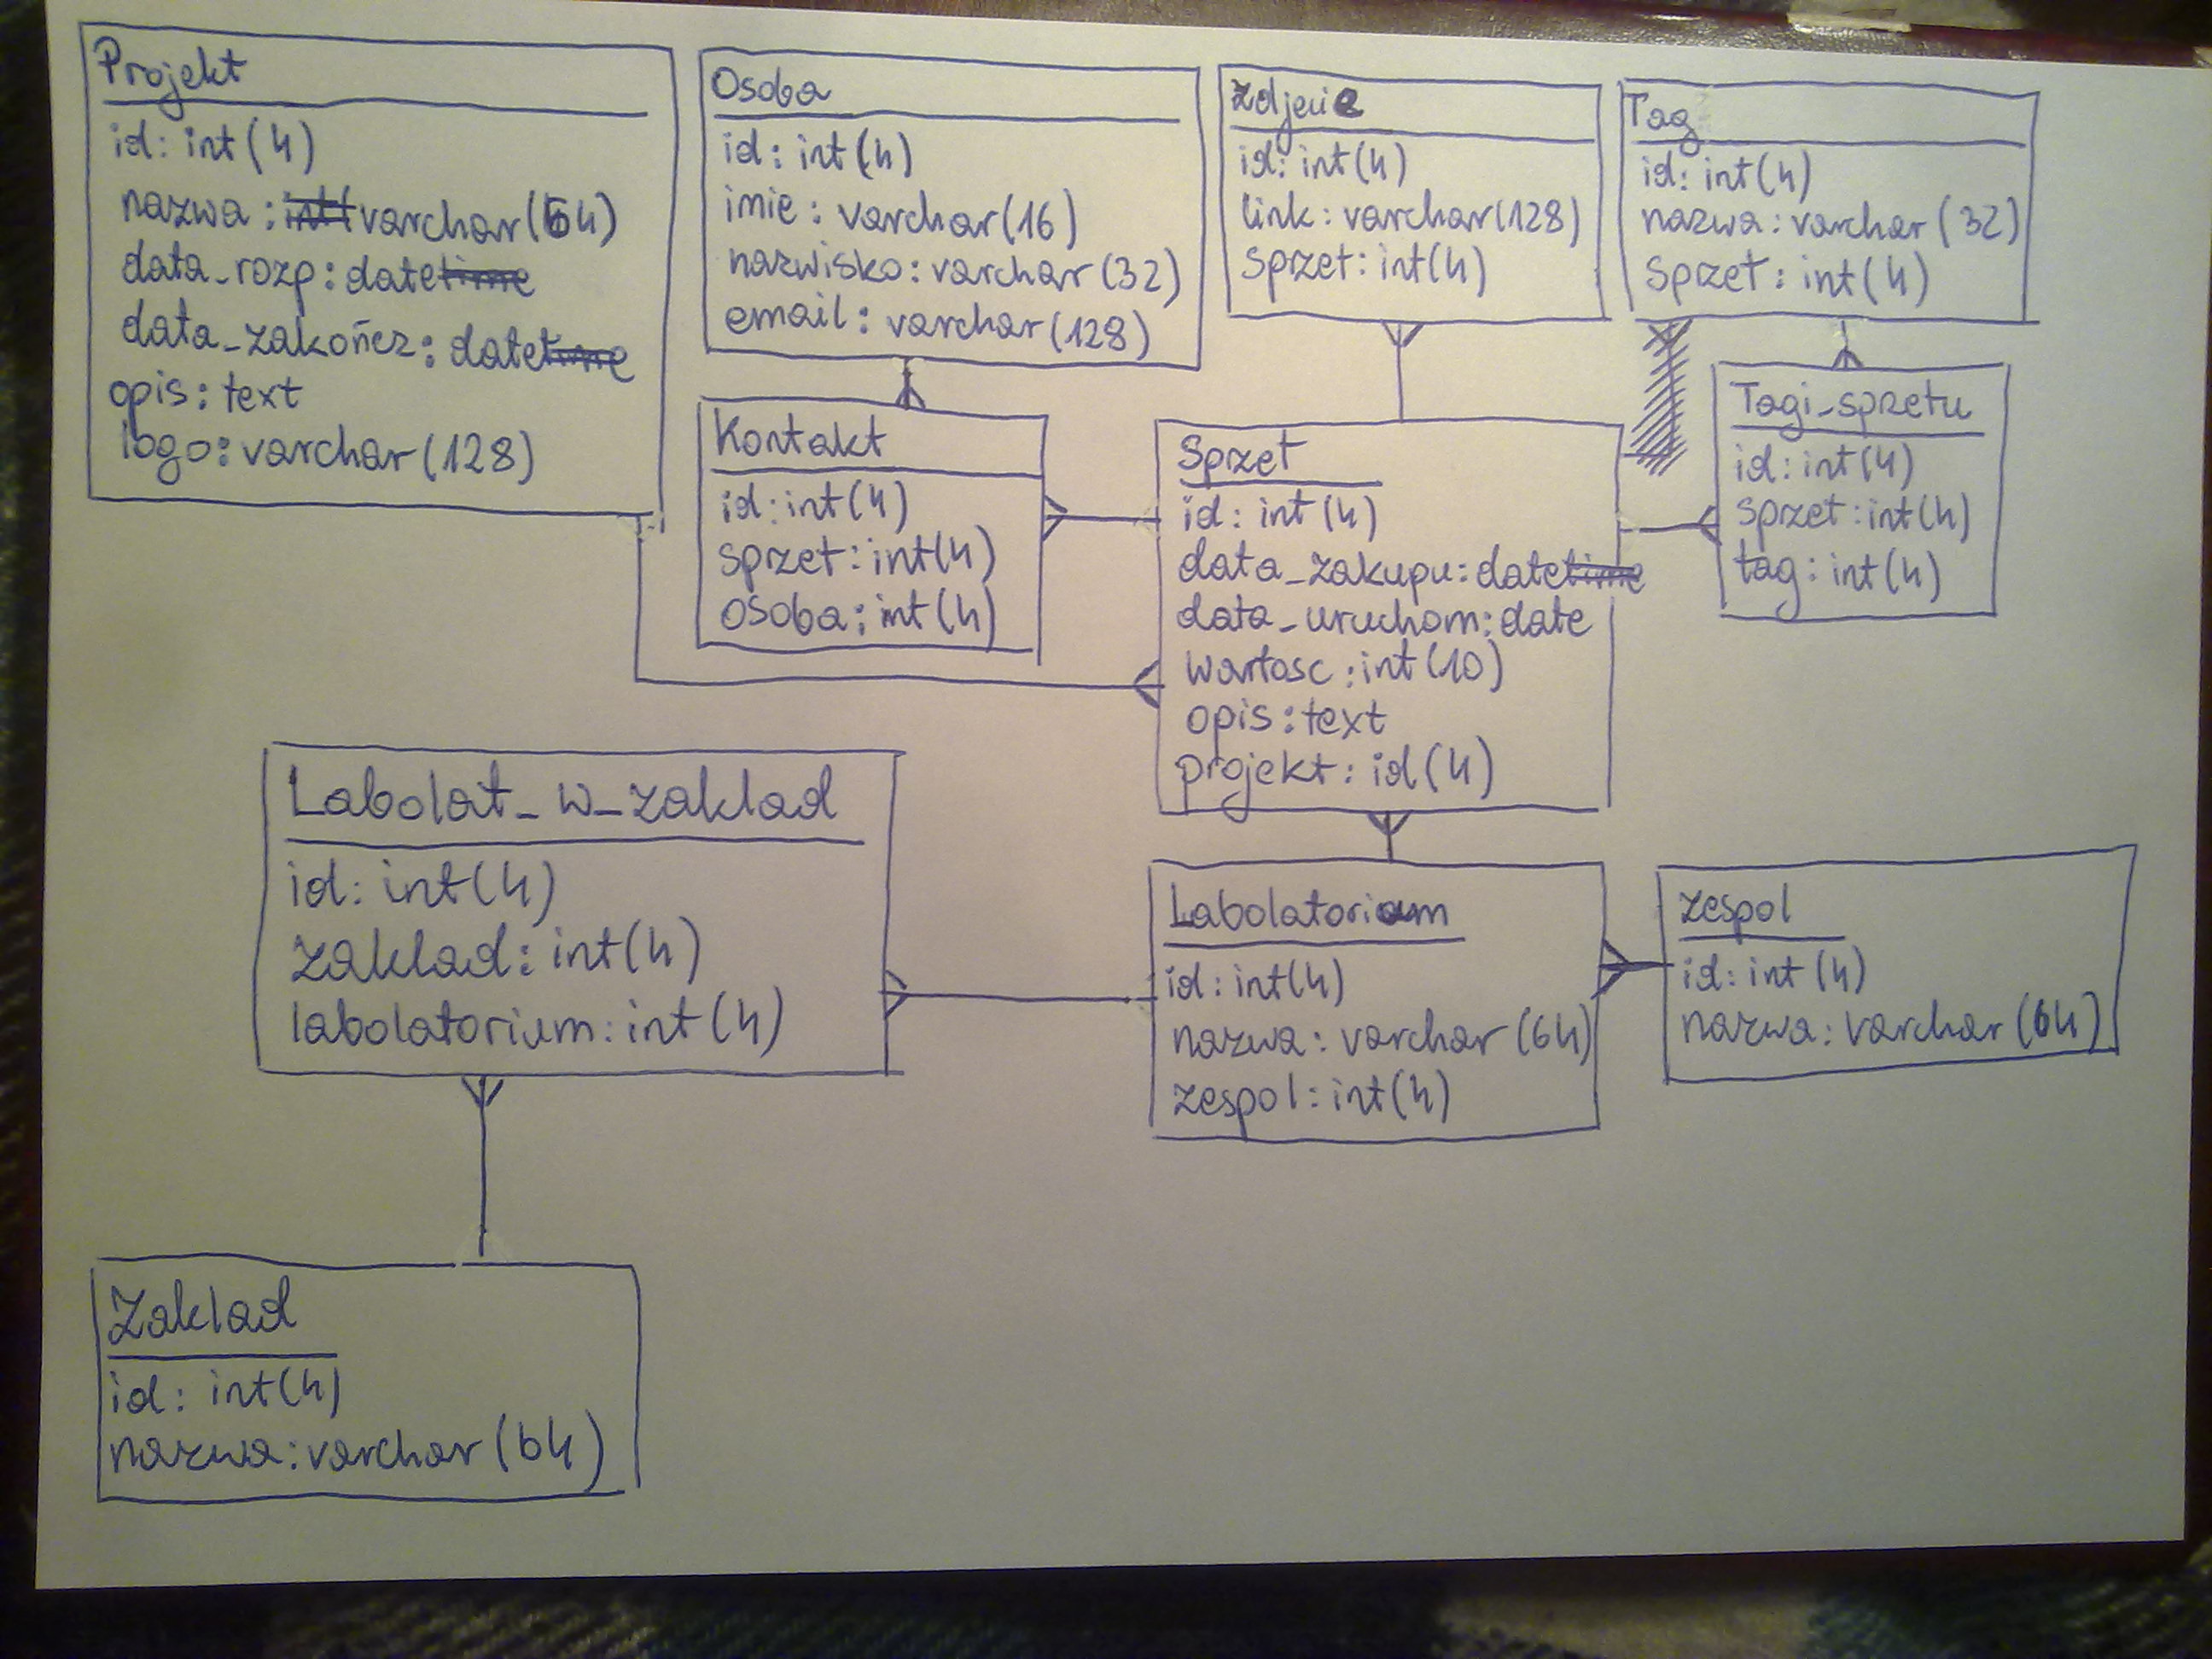 Projekt
id: int(4)
nazwa: int( varchar(64)
data_rozp: datetime
data_zakończ: datetime
opis: text
logo: varchar(128)
Osoba
id: int(4)
imie: varchar(16)
nazwisko: varchar(32)
email: varchar(128)
Zdjecie
id: int(4)
link: varchar(128)
sprzet: int(4)
Tag
id: int(4)
nazwa: varchar(32)
sprzet: int(4)
Kontakt
id: int(4)
sprzet: int(4)
osoba: int(4)
Sprzet
id: int(4)
data_zakupu: datetime
data_uruchom: date
wartosc: int(10)
opis: text
projekt: id(4)
Tagi_sprzetu
id: int(4)
sprzet: int(4)
tag: int(4)
Labolat_w_zaklad
id: int(4)
zaklad: int(4)
labolatorium: int(4)
Labolatorium
id: int(4)
nazwa: varchar(64)
zespol: int(4)
zespol
id: int(4)
nazwa: varchar(64)
Zaklad
id: int(4)
nazwa: varchar(64)